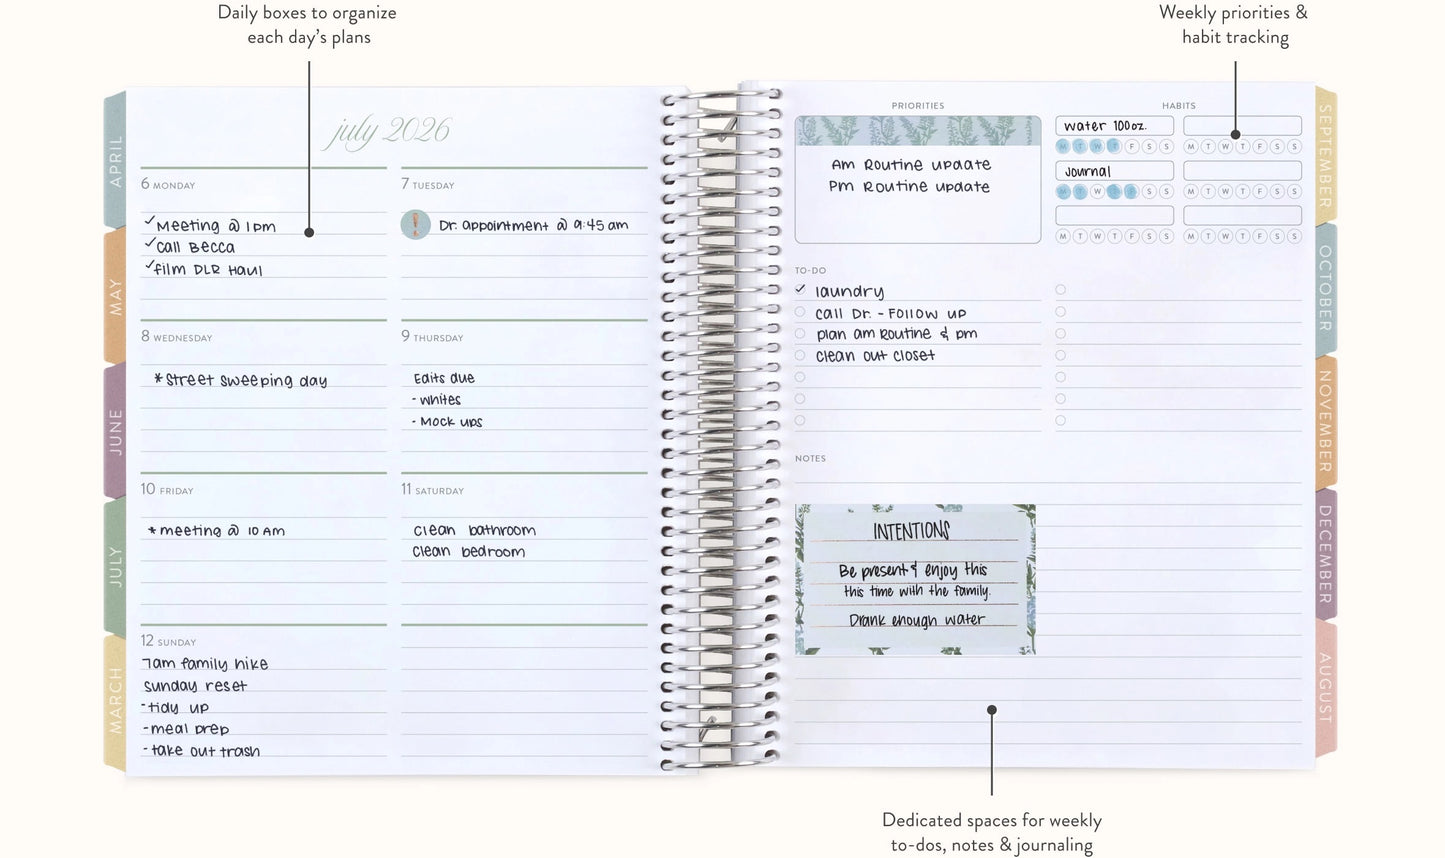 Daily boxes to organize
each day's plans
Weekly priorities &
habit tracking
APRIL
MAY
JUNE
JULY
MARCH
july 2026
6 MONDAY
✓Meeting @ 1pm
✓call Becca
✓film DLR Haul
7 TUESDAY
Dr. appointment @ 9:45 am
8 WEDNESDAY
*Street sweeping day
9 THURSDAY
Edits due
- whites
- Mock ups
10 FRIDAY
* meeting @ 10 AM
11 SATURDAY
Clean bathroom
Clean bedroom
12 SUNDAY
7am family hike
sunday reset
-tidy up
-meal prep
- take out trash
PRIORITIES
Am Routine update
Pm Routine update
HABITS
water 100oz.
M T W T F S S
M T W T F S S
Journal
M T W T F S S
M T W T F S S
M T W T F S S
M T W T F S S
TO-DO
✓ laundry
call Dr. - Follow up
plan am Routine & pm
clean out closet
NOTES
INTENTIONS
Be present & enjoy this
this time with the family.
Drank enough water
SEPTEMBER
OCTOBER
NOVEMBER
DECEMBER
AUGUST
Dedicated spaces for weekly
to-dos, notes & journaling